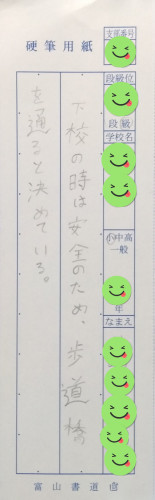 硬筆用紙
支部番号
段級位
段級
学校名
小中高
一般
年
なまえ
下校の時は安全のため、歩道橋
を通ると決めている。
富山書道会